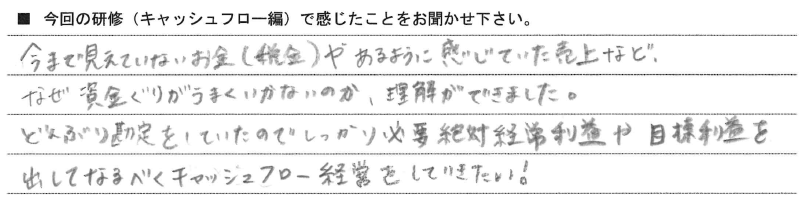 ■ 今回の研修（キャッシュフロー編）で感じたことをお聞かせ下さい。
今まで見えていないお金（税金）やあるように感じていた売上など、
なぜ資金ぐりがうまくいかないのか、理解ができました。
どんぶり勘定をしていたのでしっかり必要絶対経常利益や目標利益を
出してなるべくキャッシュフロー経営をしていきたい！